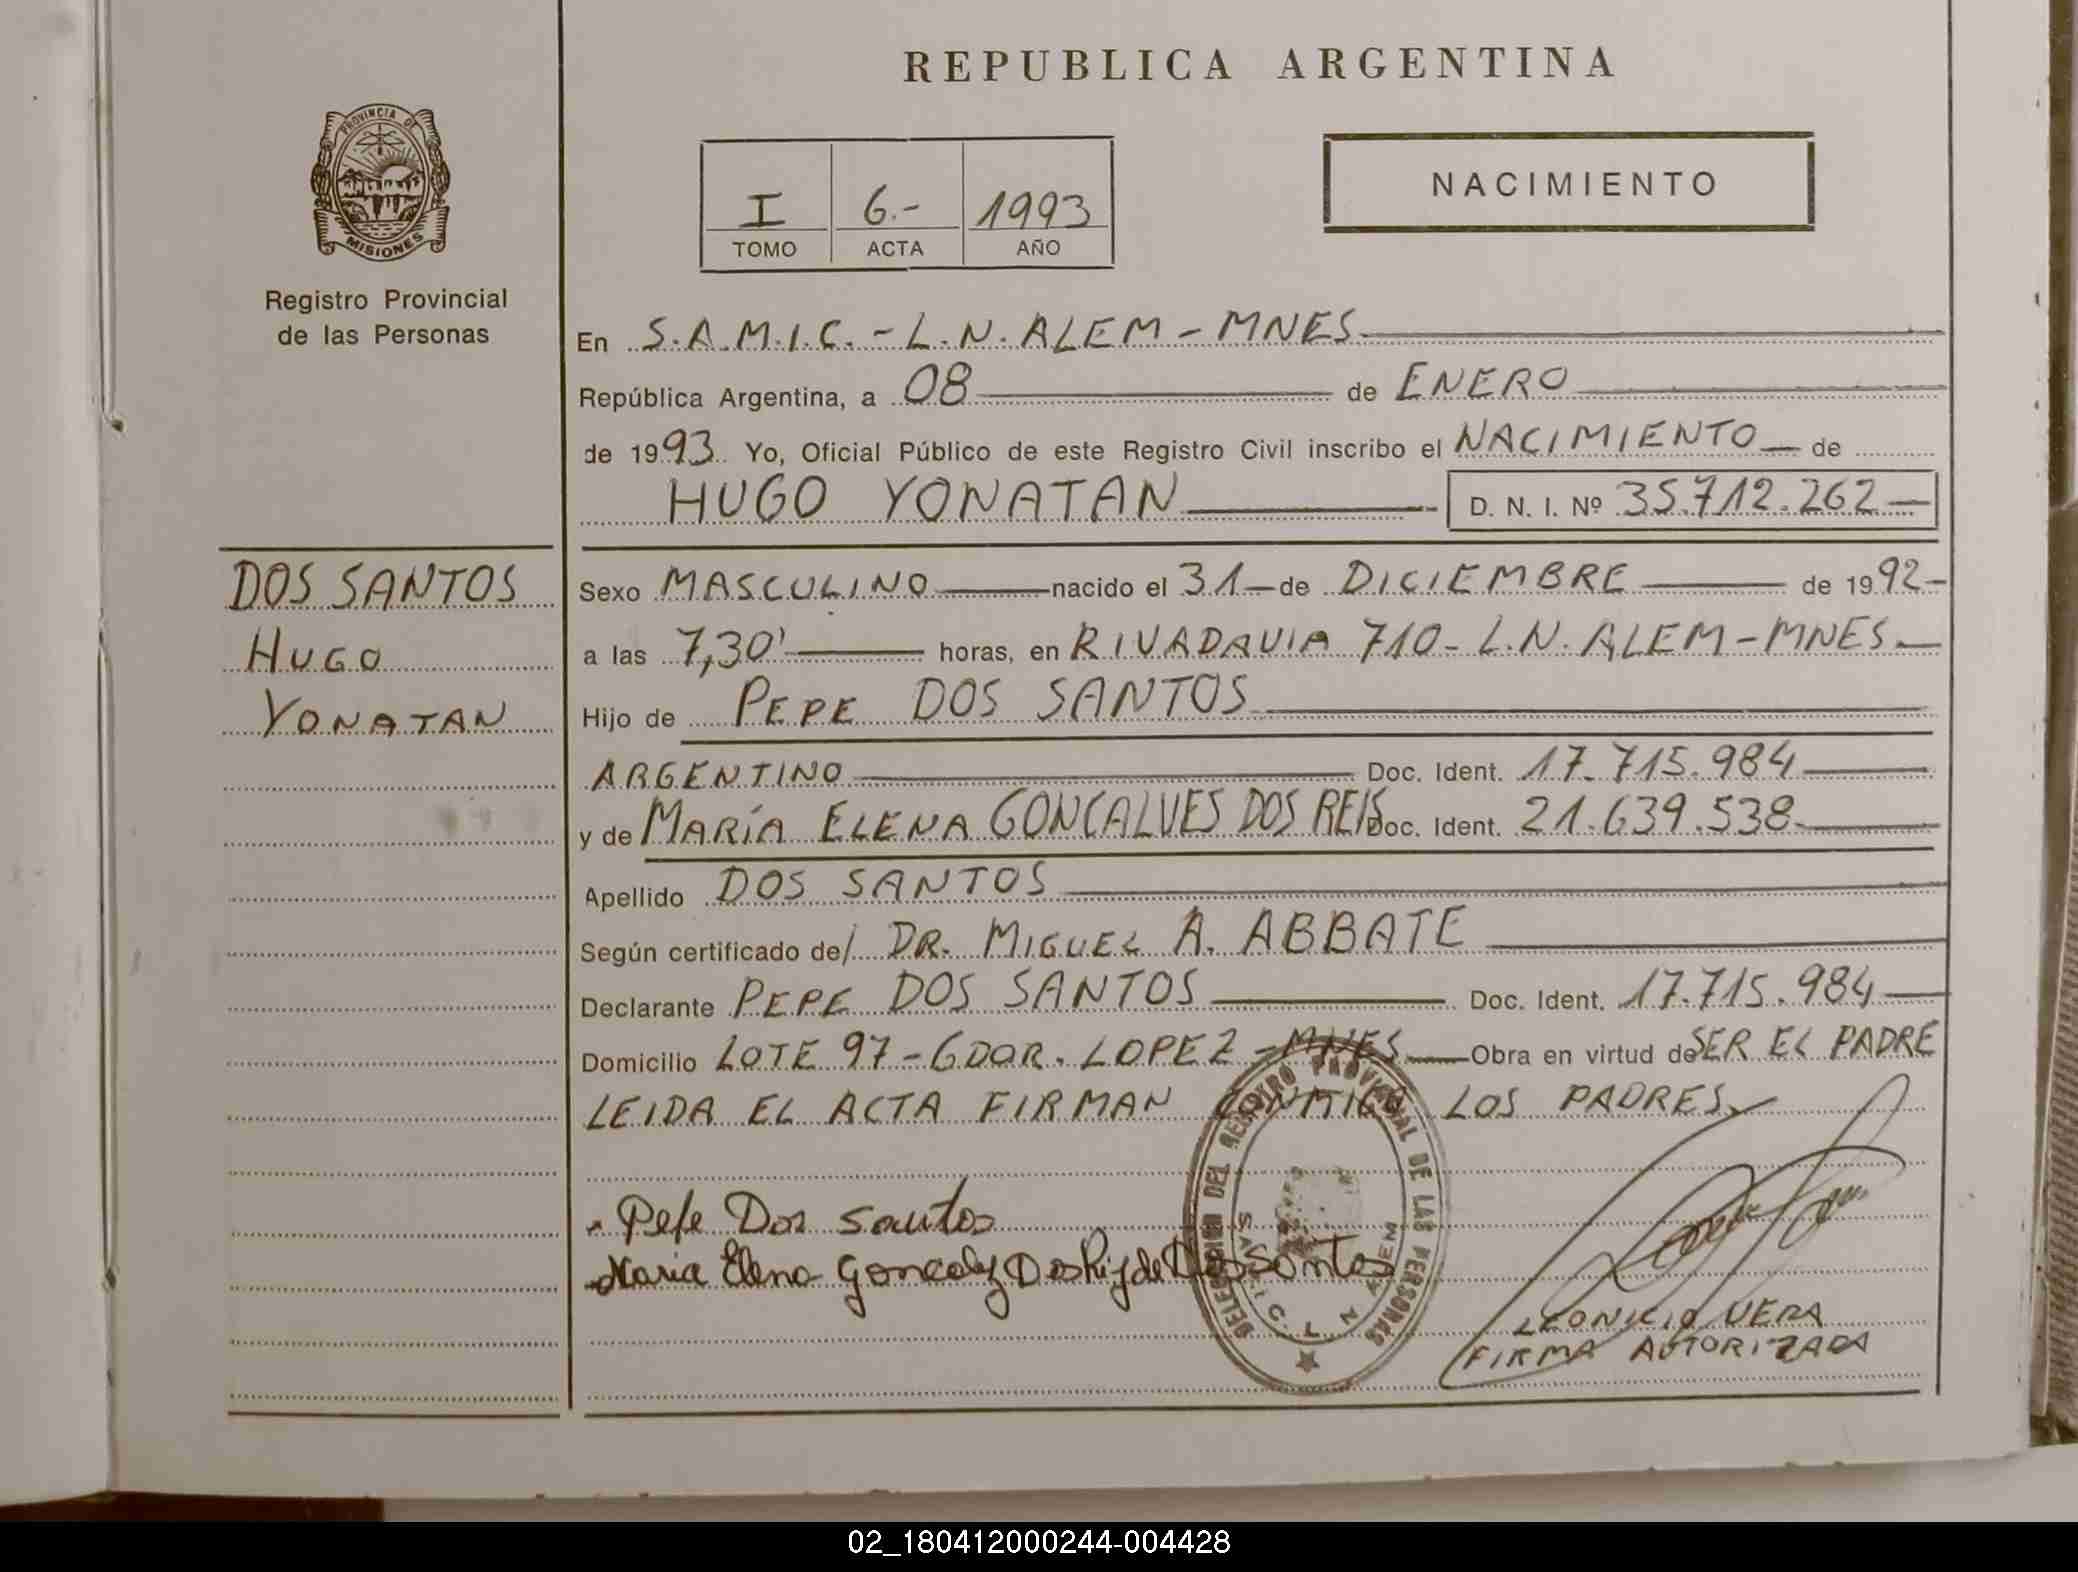 REPUBLICA ARGENTINA
PROVINCIA DE
MISIONES
Registro Provincial
de las Personas
I 6.- 1993
TOMO ACTA AÑO
NACIMIENTO
En S.A.M.I.C. - L.N. ALEM - MNES
República Argentina, a 08 de ENERO
de 1993 Yo, Oficial Público de este Registro Civil inscribo el NACIMIENTO de
HUGO YONATAN D. N. I. Nº 35.712.262
DOS SANTOS
HUGO
YONATAN
Sexo MASCULINO nacido el 31 de DICIEMBRE de 1992
a las 7,30' horas, en RIVADAVIA 710 - L.N. ALEM - MNES
Hijo de PEPE DOS SANTOS
ARGENTINO Doc. Ident. 17.715.984
y de MARÍA ELENA GONCALVES DOS REIS Doc. Ident. 21.639.538
Apellido DOS SANTOS
Según certificado de/ DR. MIGUEL A. ABBATE
Declarante PEPE DOS SANTOS Doc. Ident. 17.715.984
Domicilio LOTE 97 - GDOR. LOPEZ - MNES Obra en virtud de SER EL PADRE
LEIDA EL ACTA FIRMAN CONMIGO LOS PADRES
Pepe Dos Santos
Maria Elena Dos Santos
DELEGACION DEL REGISTRO PROVINCIAL DE LAS PERSONAS
L N ALEM
LEONICIO VERA
FIRMA AUTORIZADA
02_180412000244-004428